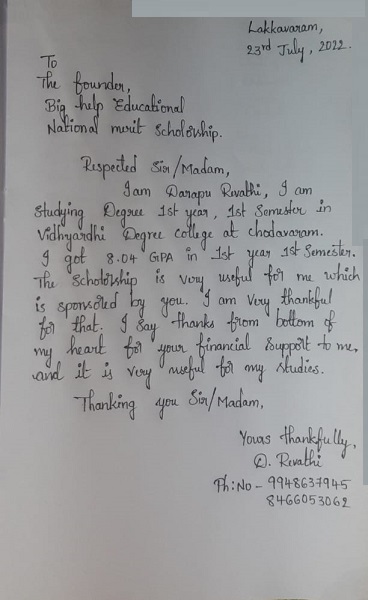 Lakkavaram,
23rd July, 2022.
To
The founder,
Big help Educational
National merit Scholorship.
Respected Sir/Madam,
I am Darapu Revathi, I am
Studying Degree 1st year, 1st Semester in
Vidhyardhi Degree college at chodavaram.
I got 8.04 GPA in 1st year 1st Semester.
The Scholorship is very useful for me which
is sponsored by you. I am very thankful
for that. I Say thanks from bottom of
my heart for your financial Support to me,
and it is very useful for my studies.
Thanking you Sir/Madam,
Yours thankfully,
D. Revathi
Ph: No - 9948637945
8466053062